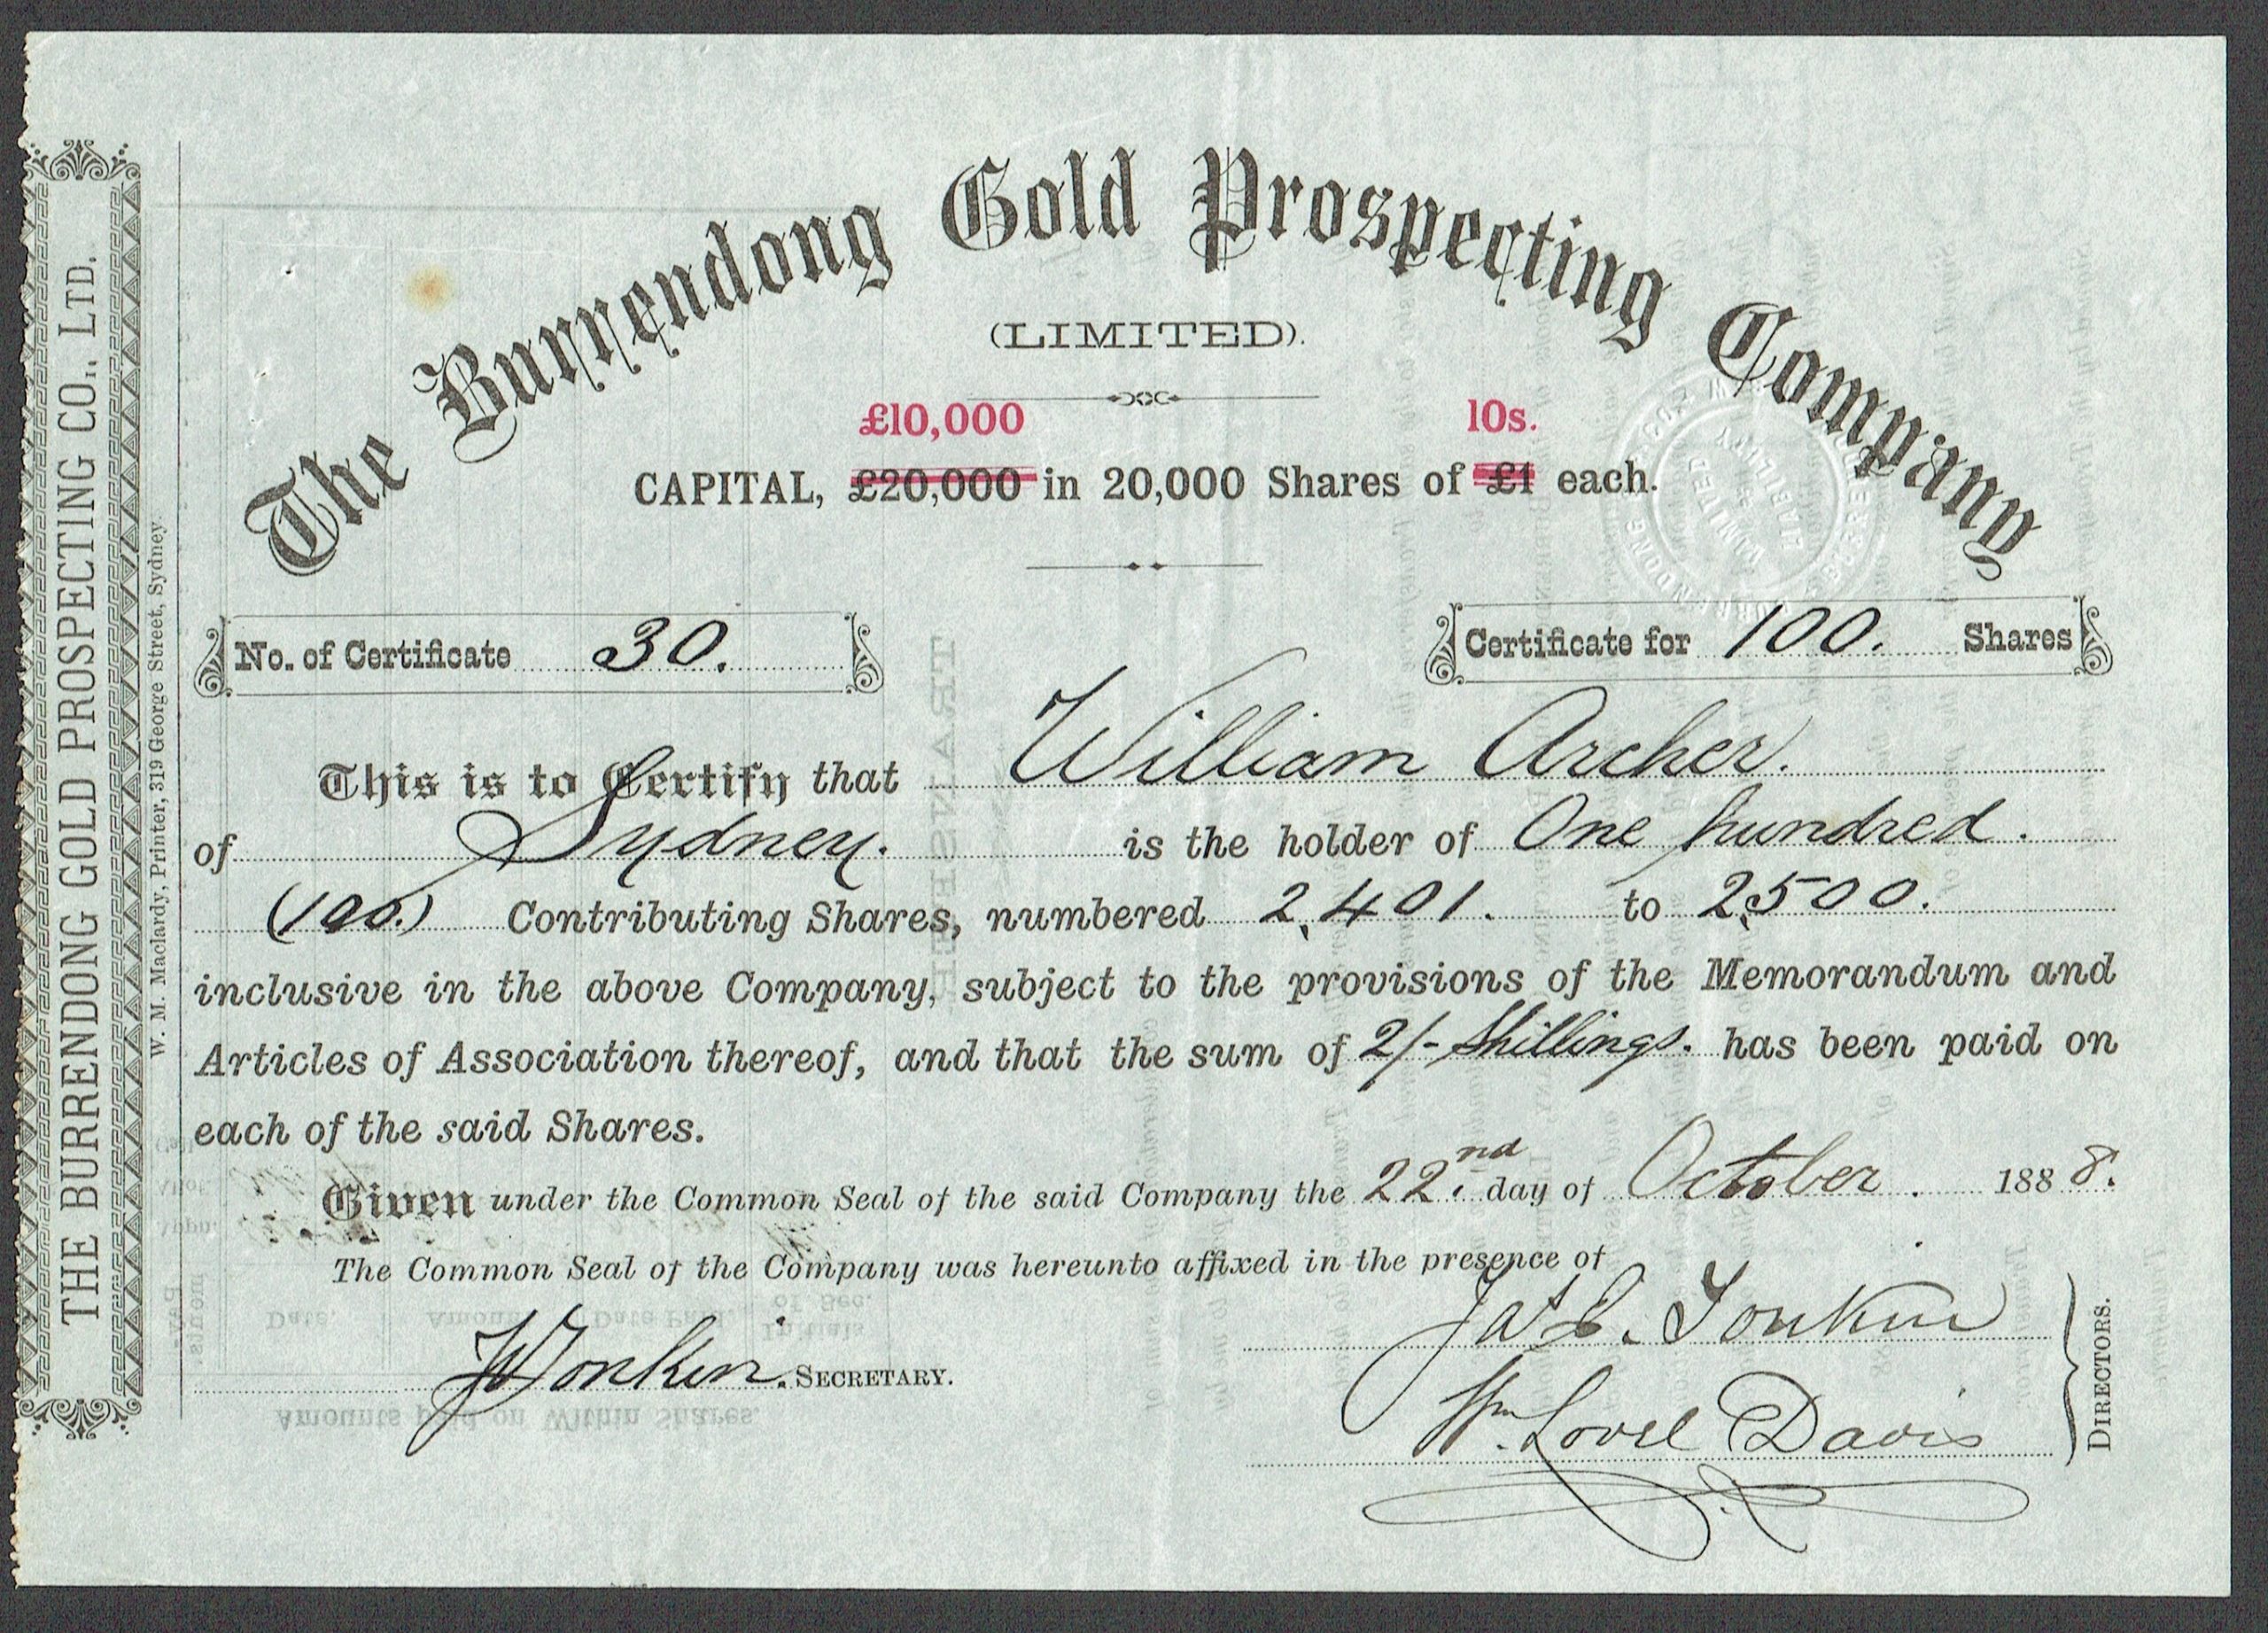 The Burrendong Gold Prospecting Company
(LIMITED).
£10,000 10s.
CAPITAL, £20,000 in 20,000 Shares of £1 each.
No. of Certificate 30.
Certificate for 100. Shares
This is to Certify that William Archer.
of Sydney. is the holder of One hundred.
(100.) Contributing Shares, numbered 2,401. to 2,500.
inclusive in the above Company, subject to the provisions of the Memorandum and
Articles of Association thereof, and that the sum of 2/- Shillings. has been paid on
each of the said Shares.
Given under the Common Seal of the said Company the 22nd. day of October. 1888.
The Common Seal of the Company was hereunto affixed in the presence of
Jas. E. Tonkin
Tonkin. SECRETARY.
Wm. Lovel Davis
DIRECTORS.
THE BURRENDONG GOLD PROSPECTING CO., LTD.
W. M. Maclardy, Printer, 319 George Street, Sydney.